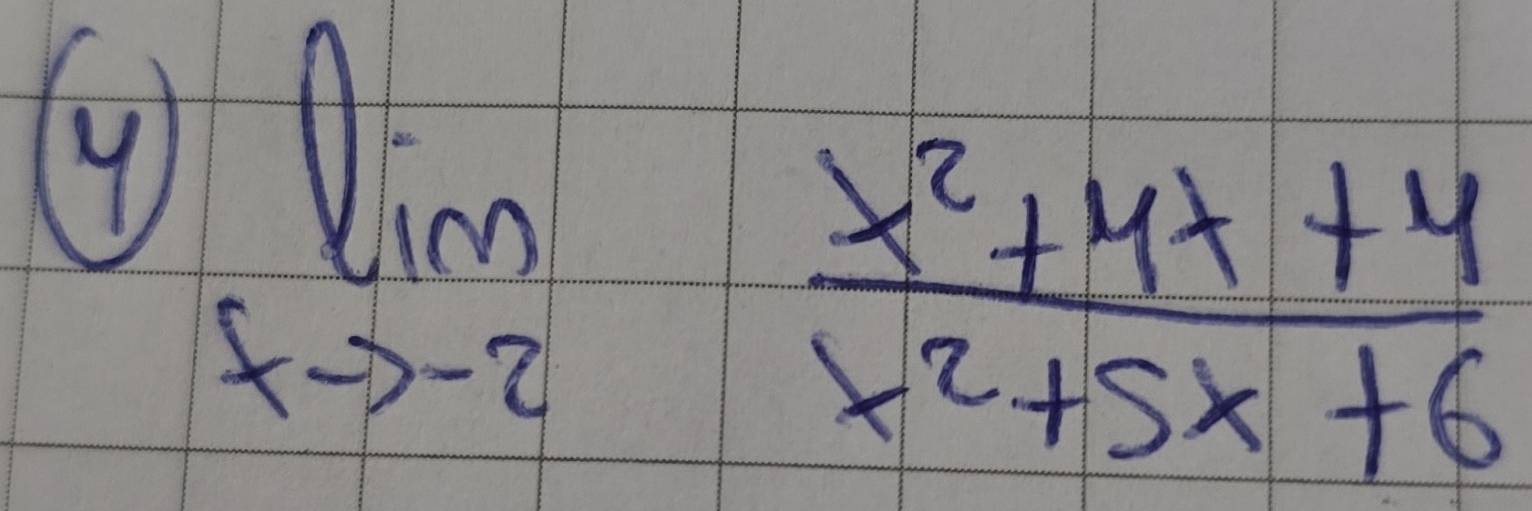 ④ lim x²+4x+4
x→-2 x²+5x+6